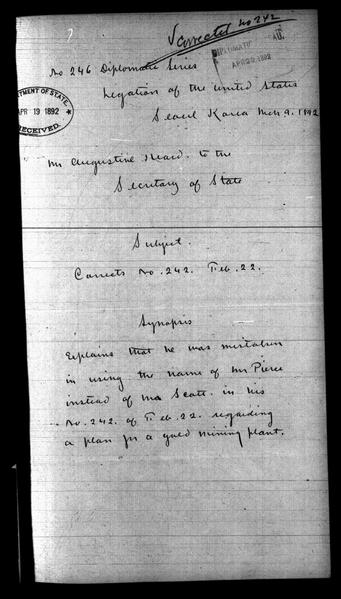 Corrected No 242
DIPLOMATIC
APR 20 1892
No 246 Diplomatic Series
Legation of the United States
DEPARTMENT OF STATE,
APR 19 1892
RECEIVED.
Seoul Korea Mch 9. 1892
Mr Augustine Heard. to the
Secretary of State
Subject.
Corrects No. 242. Feb. 22.
Synopsis
Explains that he was mistaken
in using the name of Mr Pierce
instead of Mr Scott. in his
No. 242. of Feb. 22. regarding
a plan for a gold mining plant.